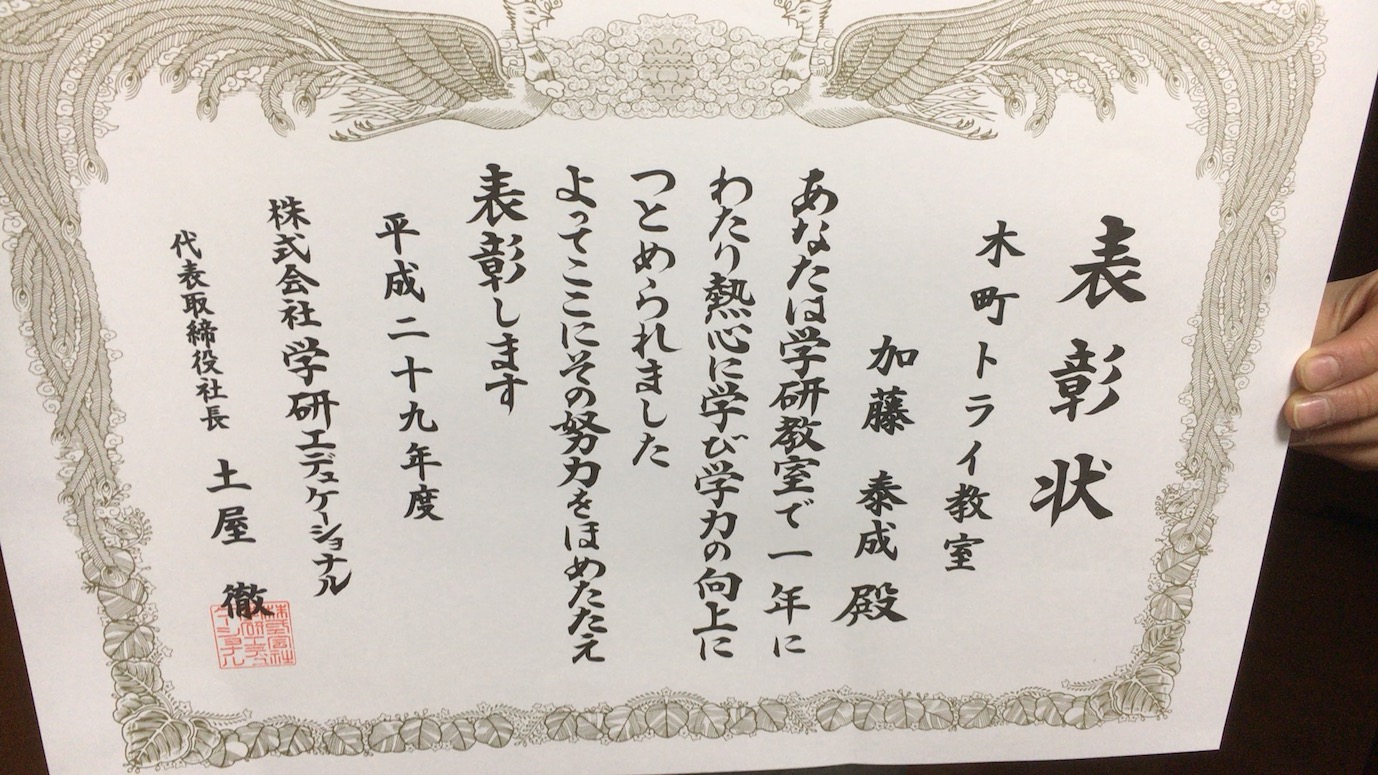 表彰状
木町トライ教室
加藤 泰成 殿
あなたは学研教室で一年に
わたり熱心に学び学力の向上に
つとめられました
よってここにその努力をほめたたえ
表彰します
平成二十九年度
株式会社 学研エデュケーショナル
代表取締役社長 土屋 徹
株式会社
学研エデュ
ケーショナル